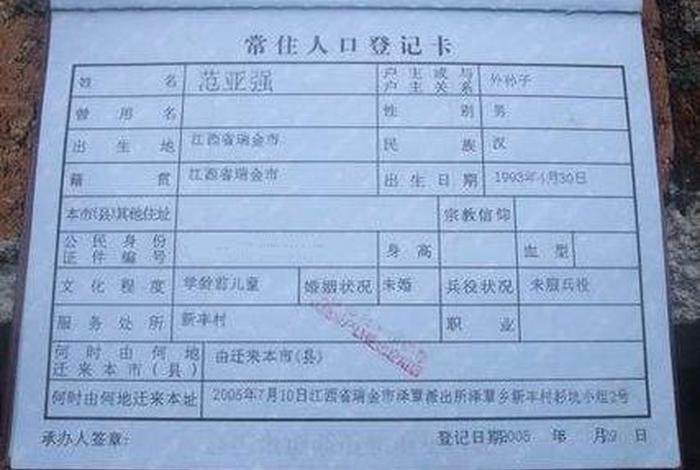 常住人口登记卡
姓名 范亚强 户主或与户主关系 外孙子
曾用名 性别 男
出生地 江西省瑞金市 民族 汉
籍贯 江西省瑞金市 出生日期 1993年4月30日
本市(县)其他住址 宗教信仰
公民身份证件编号 身高 血型
文化程度 学龄前儿童 婚姻状况 未婚 兵役状况 未服兵役
服务处所 新丰村 职业
何时由何地迁来本市(县) 由迁来本市(县)
何时由何地迁来本址 2005年7月10日江西省瑞金市泽覃派出所泽覃乡新丰村杉坑小组2号
承办人签章: 登记日期:2005 年 月 日